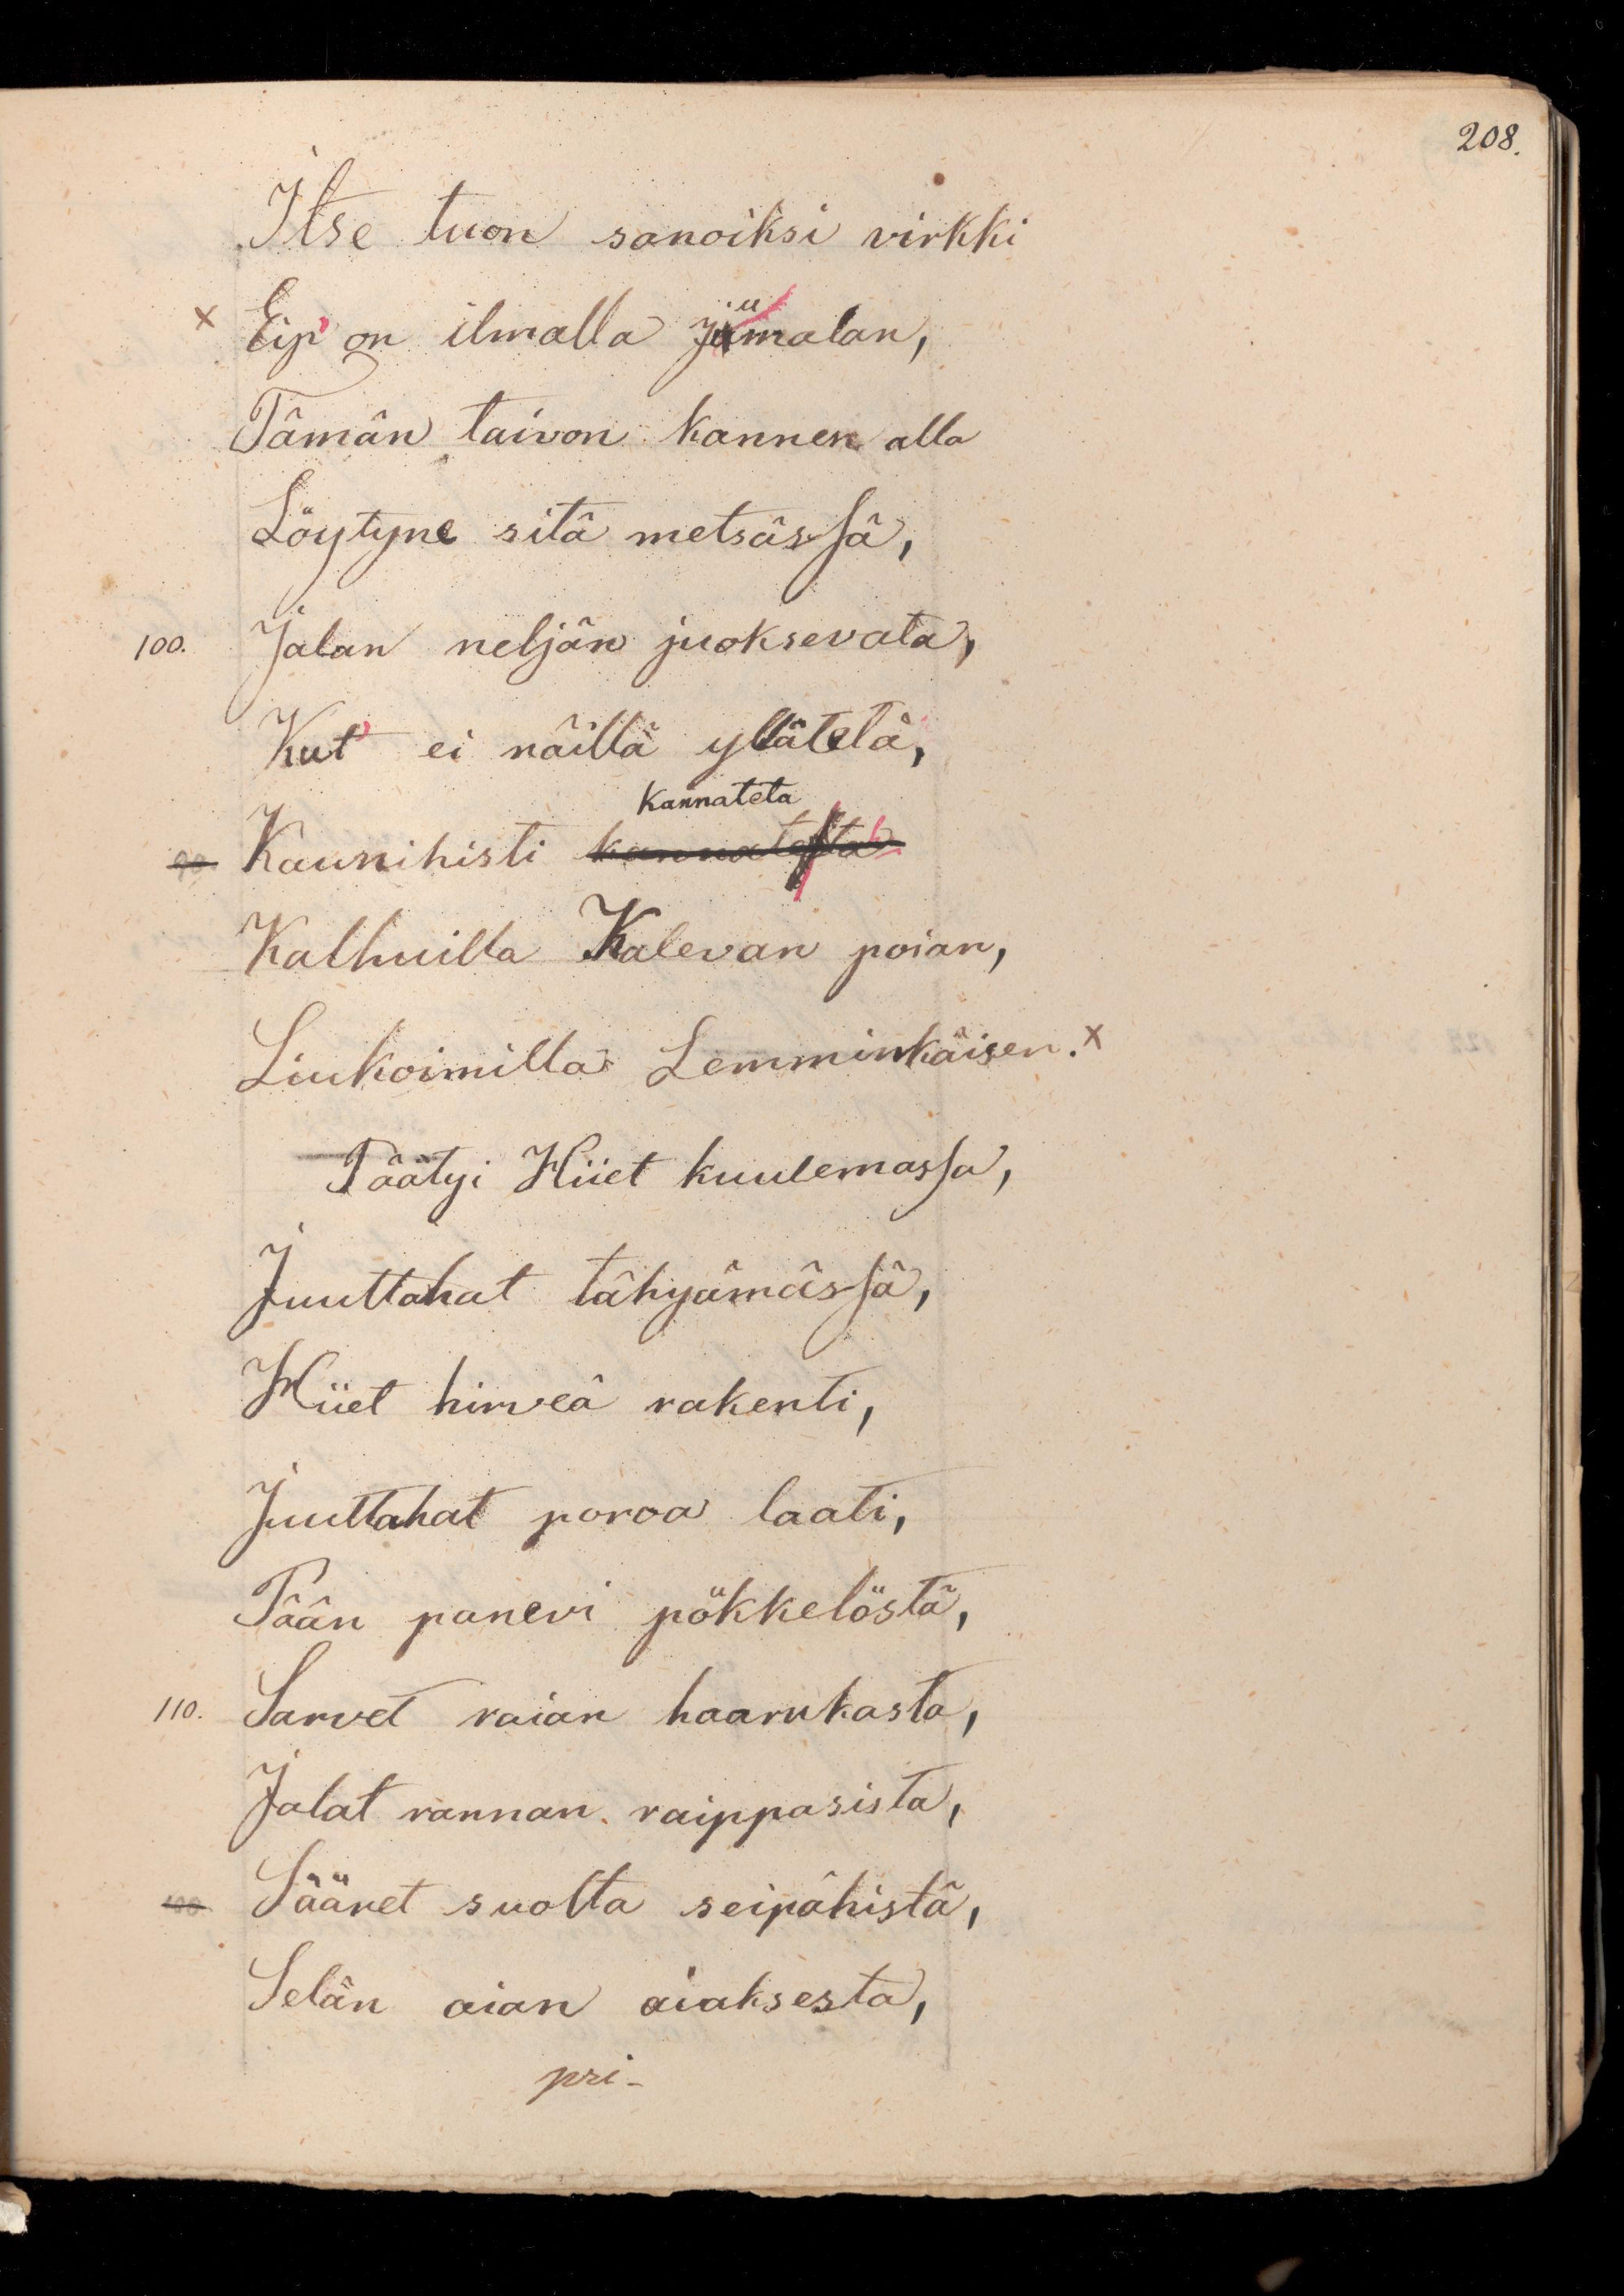 208.
Itse tuon sanoiksi virkki
x Eip' on ilmalla Jumalan,
Tämän taivon kannen alla
Löytyne sitä metsässä,
100. Jalan neljän juoksevata,
Kut' ei näillä ylätetä,
Kannateta
90 Kaunihisti kannatesta
Kalhuilla Kalevan poian,
Liukoimilla Lemminkäisen. x
Päätyi Hiiet kuulemassa,
Juuttahat tähyämässä,
Hiiet hirveä rakenti,
Juuttahat poroa laati,
Pään panevi pökkelöstä,
110. Sarvet raian haarukasta,
Jalat rannan raippasista,
100 Sääret suolta seipähistä,
Selän aian aiaksesta,
pri-